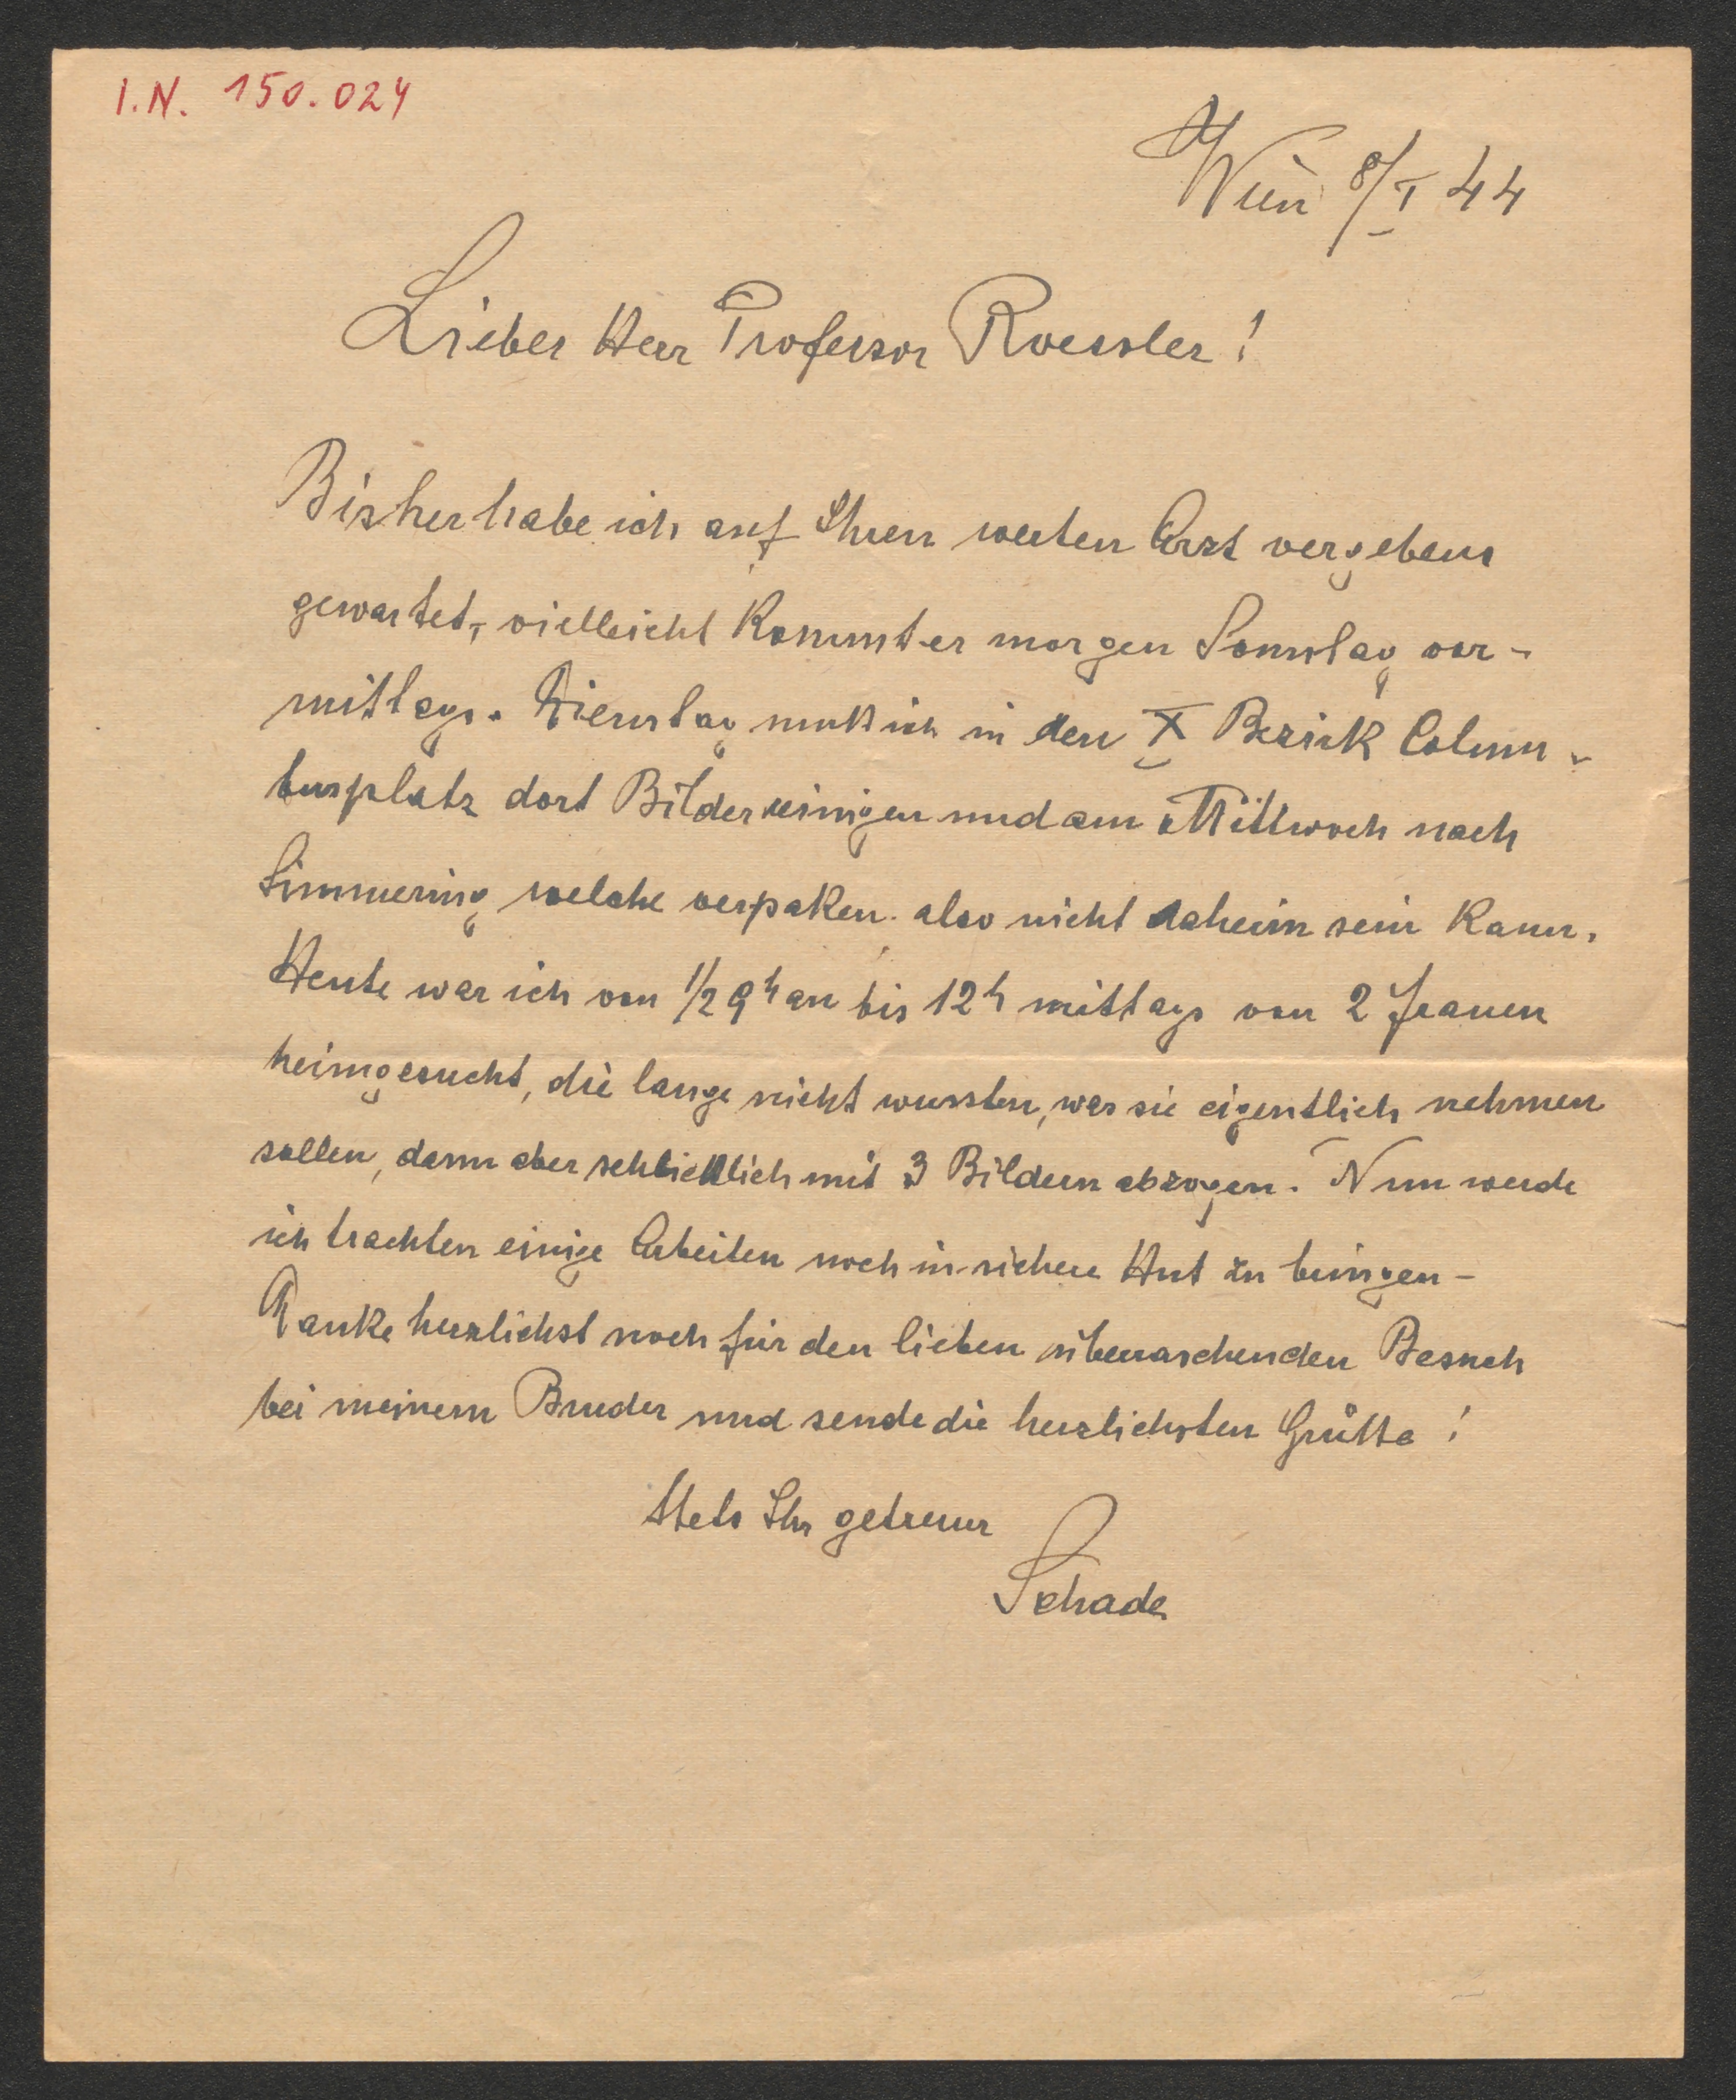 I.N. 150.024
Wien 8/I 44
Lieber Herr Professor Roessler!
Bisher habe ich auf Ihren werten Arzt vergebens
gewartet, vielleicht kommt er morgen Sonntag vor-
mittags. Dienstag muß ich in den X Bezirk Colum-
busplatz dort Bilder reinigen und am Mittwoch nach
Simmering welche verpaken. also nicht daheim sein kann.
Heute war ich von 1/2 9h an bis 12h mittags von 2 Frauen
heimgesucht, die lange nicht wussten, was sie eigentlich nehmen
sollen, dann aber schließlich mit 3 Bildern abzogen. Nun werde
ich trachten einige Arbeiten noch in sichere Hut zu bringen-
Danke herzlichst noch für den lieben überraschenden Besuch
bei meinem Bruder und sende die herzlichsten Grüße!
Stets Ihr getreuer
Schade